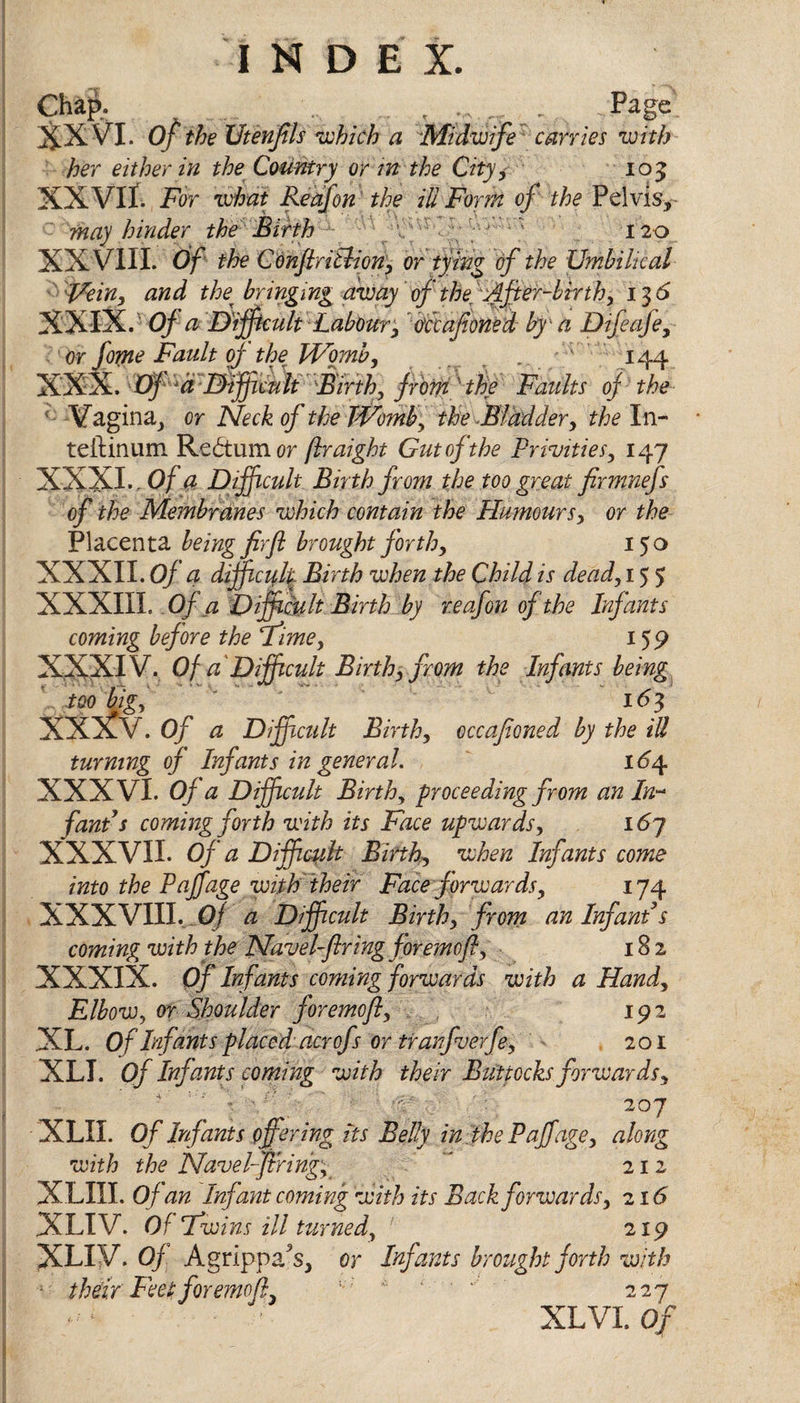 INDEX.
Chap. Page
XXVI. Of the Utenſils which a Midwife carries with
her either in the Country or in the City, 103
XXVII. For what Reaſon the ill Form of the Pelvis,
may hinder the Birth 120
XXVIII. Of the Conſtriction, or tying of the Umbilical
Vein, and the bringing away of the After-birth, 136
XXIX. Of a Difficult Labour, occaſioned by a Diſeaſe,
or ſome Fault of the Womb, 144
XXX. Of a Difficult Birth, from the Faults of the
Vagina, or Neck of the Womb, the Bladder, the In-
teſtinum Rectum or ſtraight Gut of the Privities, 147
XXXI. Of a Difficult Birth from the too great firmneſs
of the Membranes which contain the Humours, or the
Placenta being firſt brought forth, 150
XXXII. Of a difficult Birth when the Child is dead, 155
XXXIII. Of a Difficult Birth by reaſon of the Infants
coming before the Time, 159
XXXIV. Of a Difficult Birth, from the Infants being
too big, 163
XXXV. Of a Difficult Birth, occaſioned by the ill
turning of Infants in general. 164
XXXVI. Of a Difficult Birth, proceeding from an In-
fant's coming forth with its Face upwards, 167
XXXVII. Of a Difficult Birth, when Infants come
into the Paſſage with their Face forwards, 174
XXXVIII. Of a Difficult Birth, from an Infant's
coming with the Navel-ſtring foremoſt, 182
XXXIX. Of Infants coming forwards with a Hand,
Elbow, or Shoulder foremoſt, 192
XL. Of Infants placed acroſs or tranſverſe, 201
XLI. Of Infants coming with their Buttocks forwards,
207
XLII. Of Infants offering its Belly in the Paſſage, along
with the Navel-ſtring, 212
XLIII. Of an Infant coming with its Back forwards, 216
XLIV. Of Twins ill turned, 219
XLIV. Of Agrippa's, or Infants brought forth with
their Feet foremoſt, 227
XLVI. Of